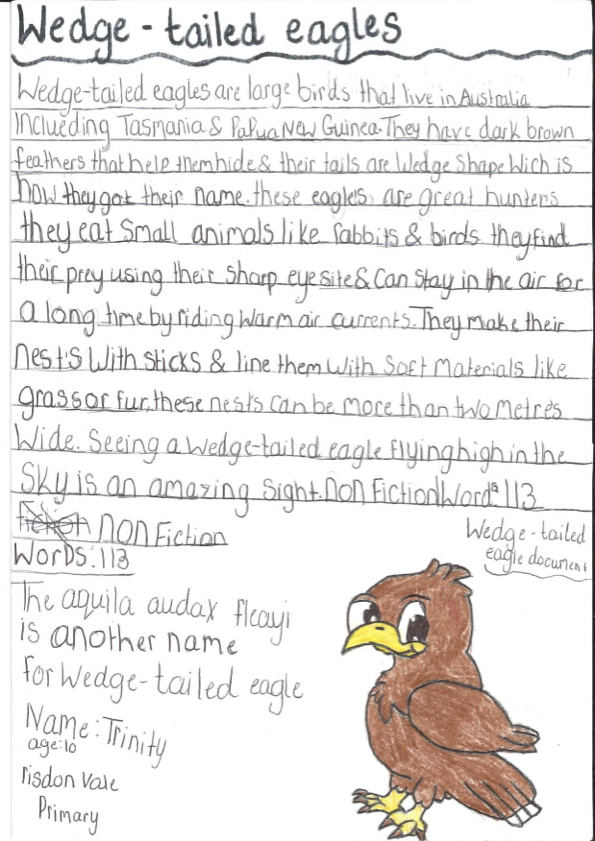 Wedge-tailed eagles
Wedge-tailed eagles are large birds that live in Australia
Inclueding Tasmania & Papua New Guinea. They have dark brown
feathers that help them hide & their tails are Wedge Shape Wich is
how they got their name. these eagles are great hunters
they eat Small animals like Rabbits & birds they find
their prey using their Sharp eye site & Can Stay in the air for
a long time by riding Warm air currents. They make their
nest's With Sticks & line them With Soft Materials like
grass or fur, these nests Can be more than two Metres
Wide. Seeing a Wedge-tailed eagle flying high in the
Sky is an amazing Sight. Non Fiction Words 113
Fiction Non Fiction
Words: 113
Wedge-tailed
eagle document
The aquila audax fleayi
is another name
for Wedge-tailed eagle
Name: Trinity
age: 10
risdon Vale
Primary